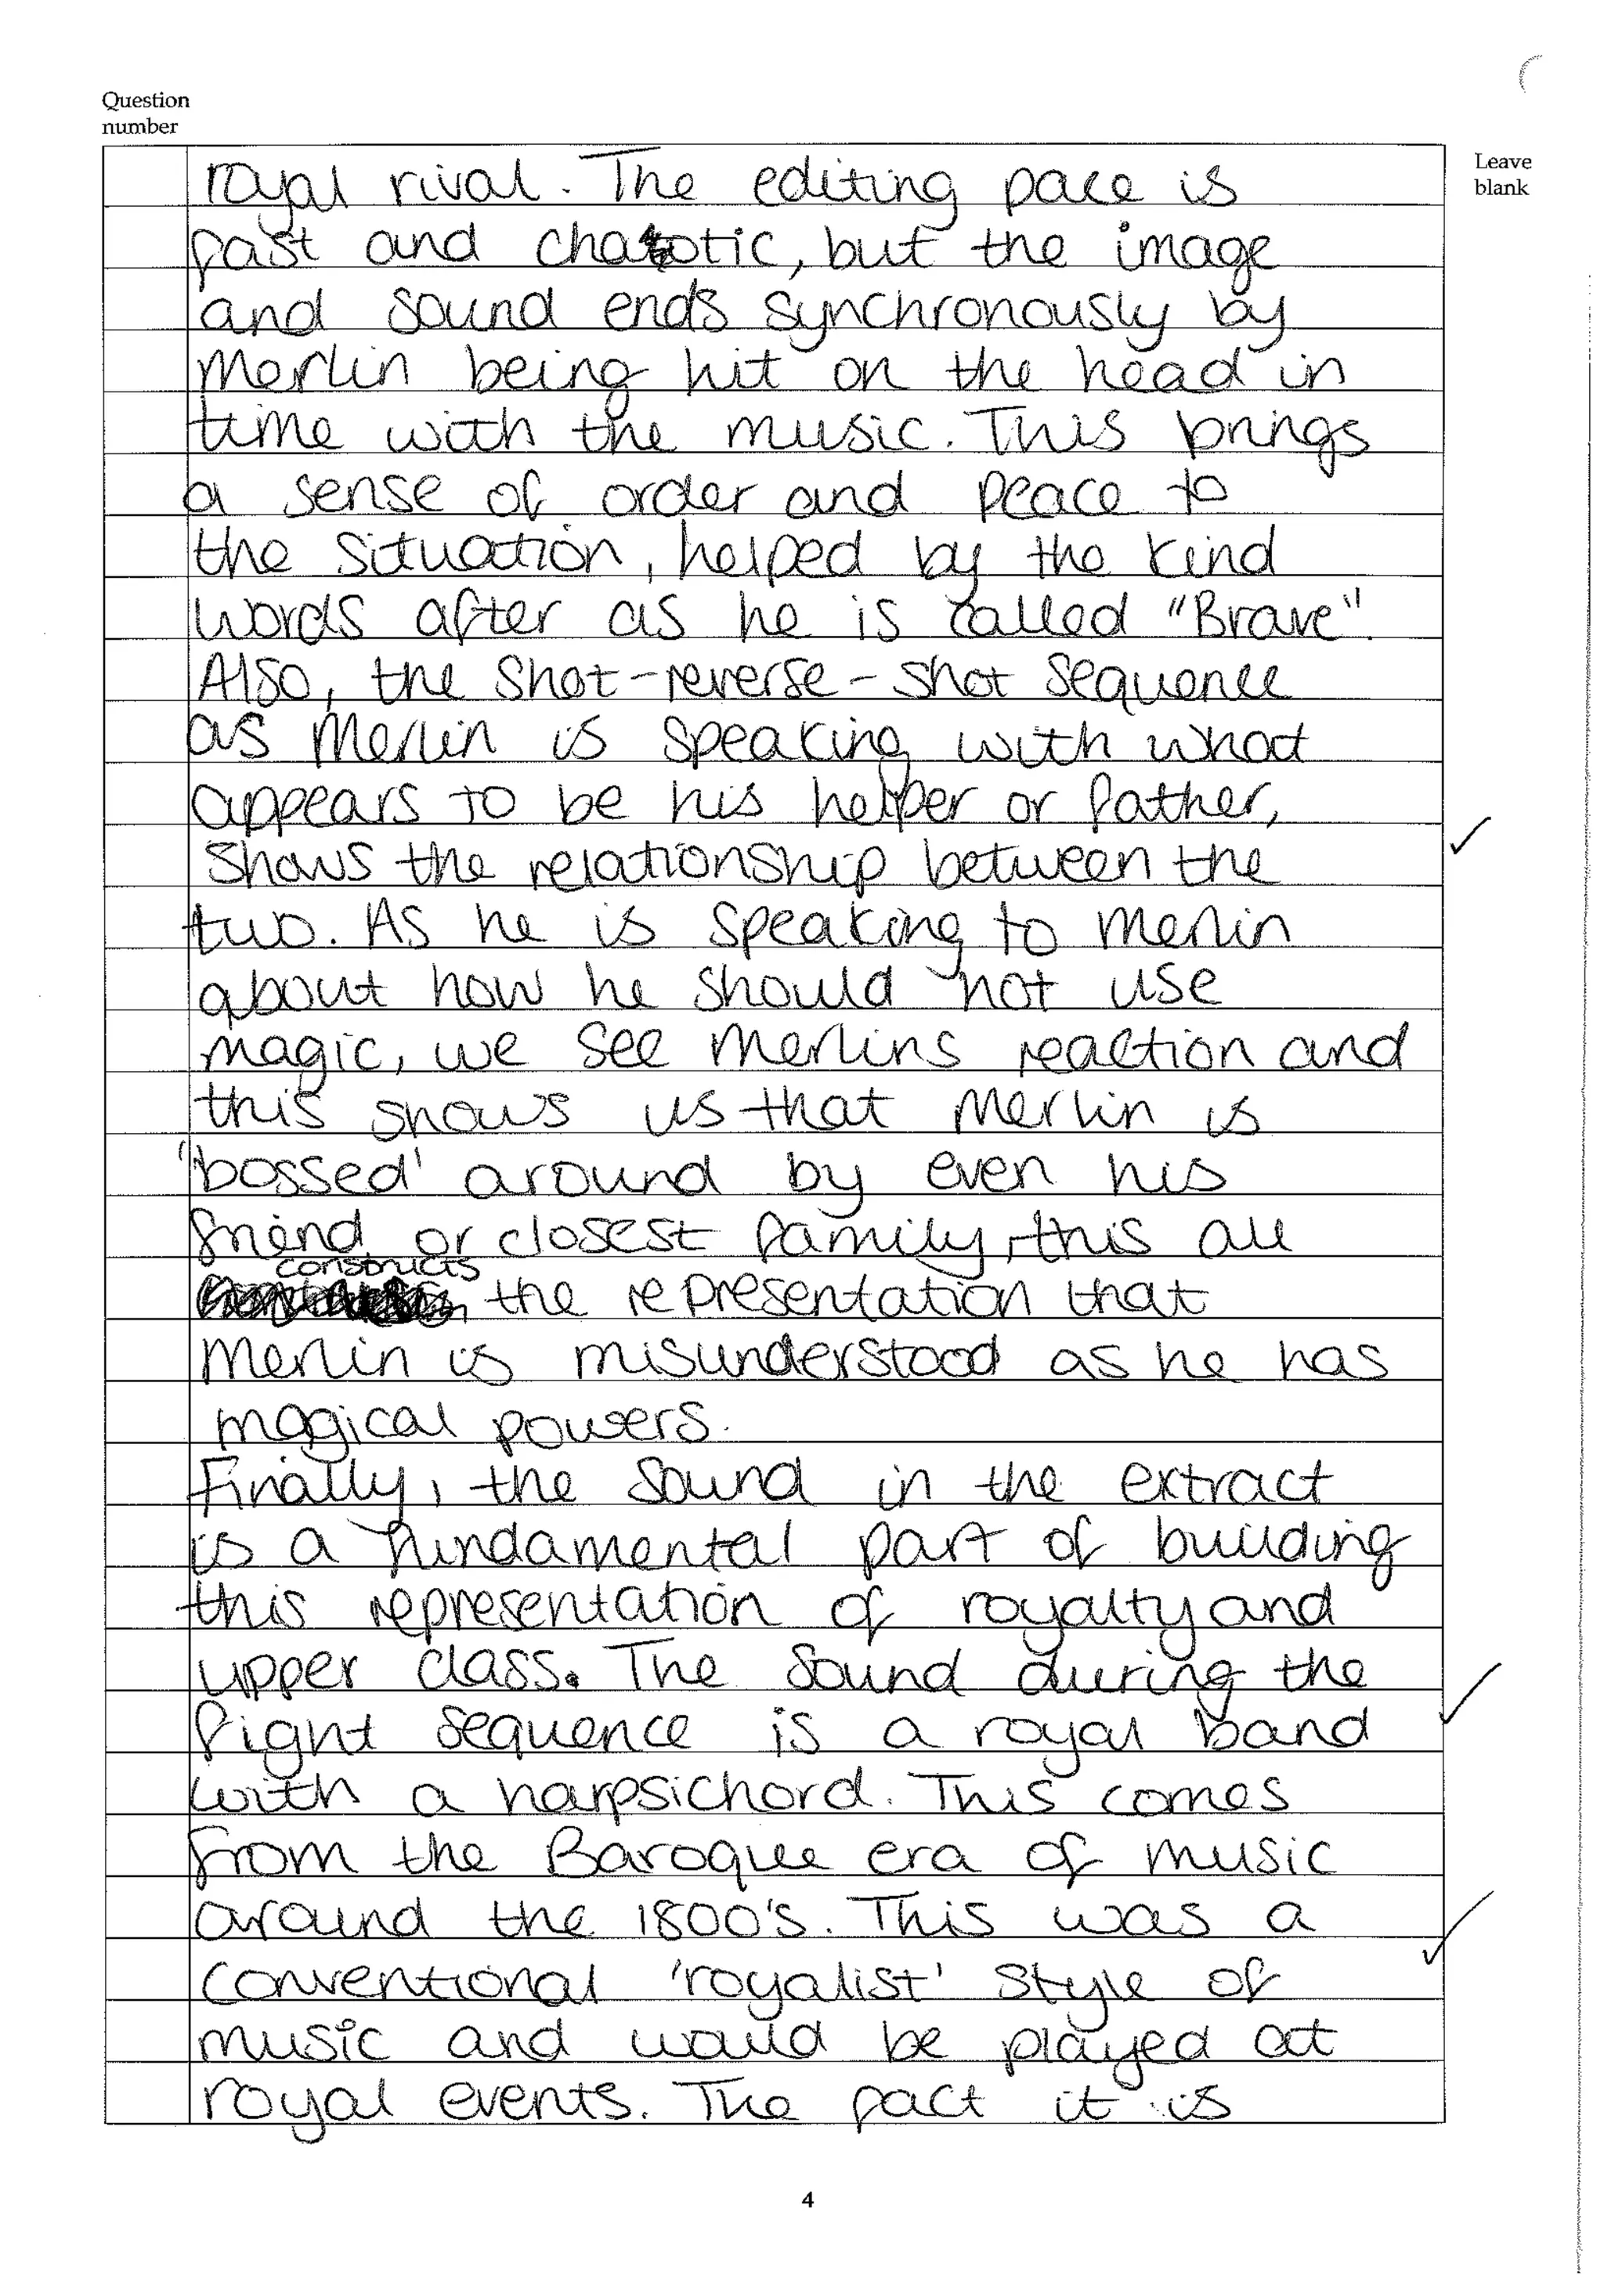 Question
number
Leave
blank
royal rival. The editing pace is
fast and chaotic, but the image
and sound ends synchronously by
Merlin being hit on the head in
time with the music. This brings
a sense of order and peace to
the situation, helped by the kind
words after as he is called "Brave".
Also, the shot-reverse-shot sequence
as Merlin is speaking with what
appears to be his helper or father,
shows the relationship between the
two. As he is speaking to Merlin
about how he should not use
magic, we see Merlins reaction and
this shows us that Merlin is
'bossed' around by even his
friend or closest family, this all
constructs
the representation that
Merlin is misunderstood as he has
magical powers.
Finally, the sound in the extract
is a fundamental part of building
this representation of royalty and
upper class. The sound during the
fight sequence is a royal band
with a harpsichord. This comes
from the Baroque era of music
around the 1800's. This was a
conventional 'royalist' style of
music and would be played at
royal events. The fact it is
4